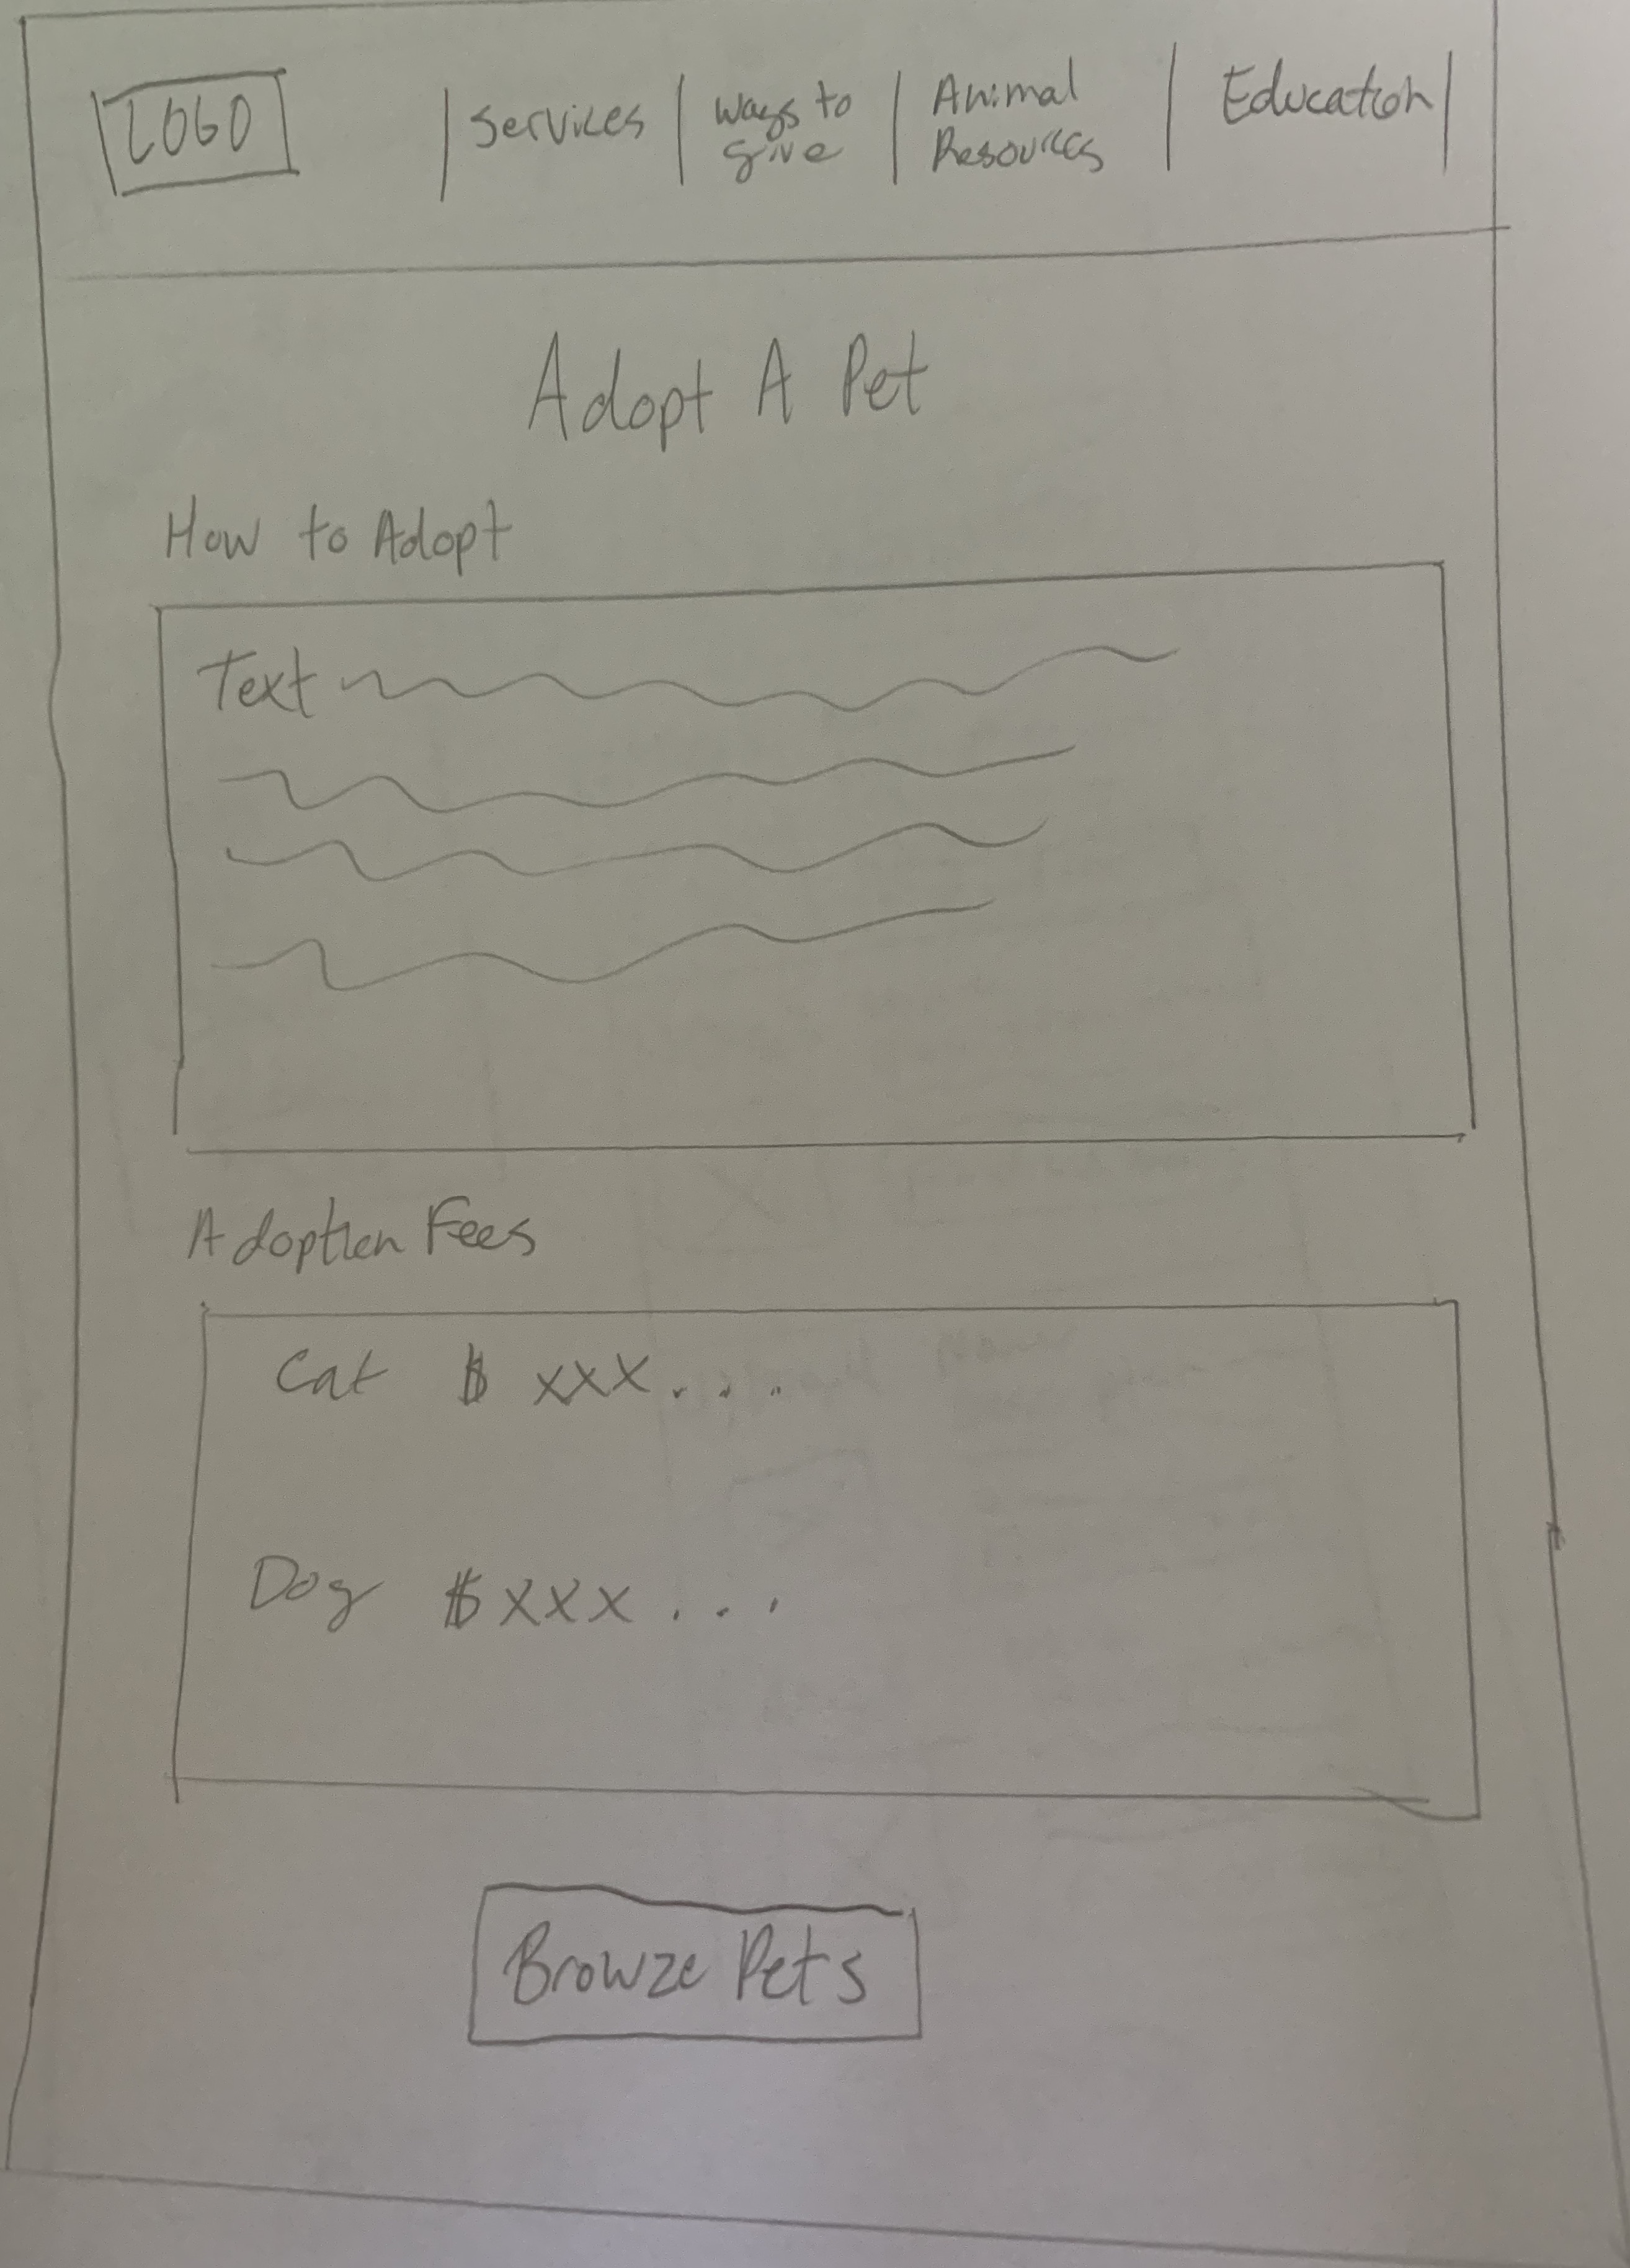 LOGO
Services
Ways to
give
Animal
Resources
Education
Adopt A Pet
How to Adopt
Text
Adoption Fees
Cat $ xxx...
Dog $xxx...
Browze Pets